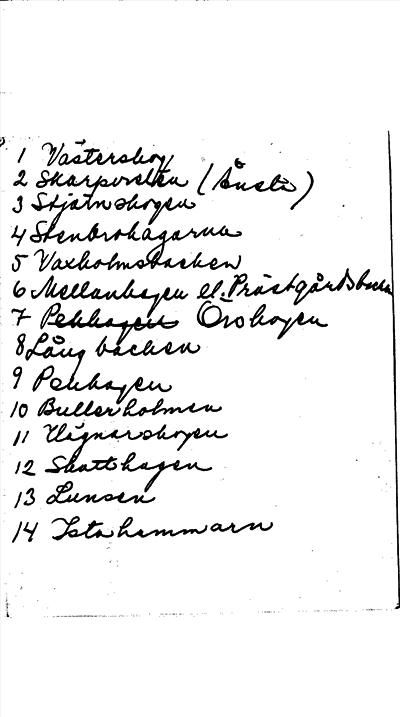 1 Västerskog
2 Skarpvreten (Ånsta)
3 Stjärnskogen
4 Stenbrohagarna
5 Vaxholmsbacken
6 Mellanhagen el. Prästgårdsbacken
7 Pekhagen Örskogen
8 Långbacken
9 Pekhagen
10 Bullerholmen
11 skogen
12 Skatthagen
13 Lunsen
14 hammarn